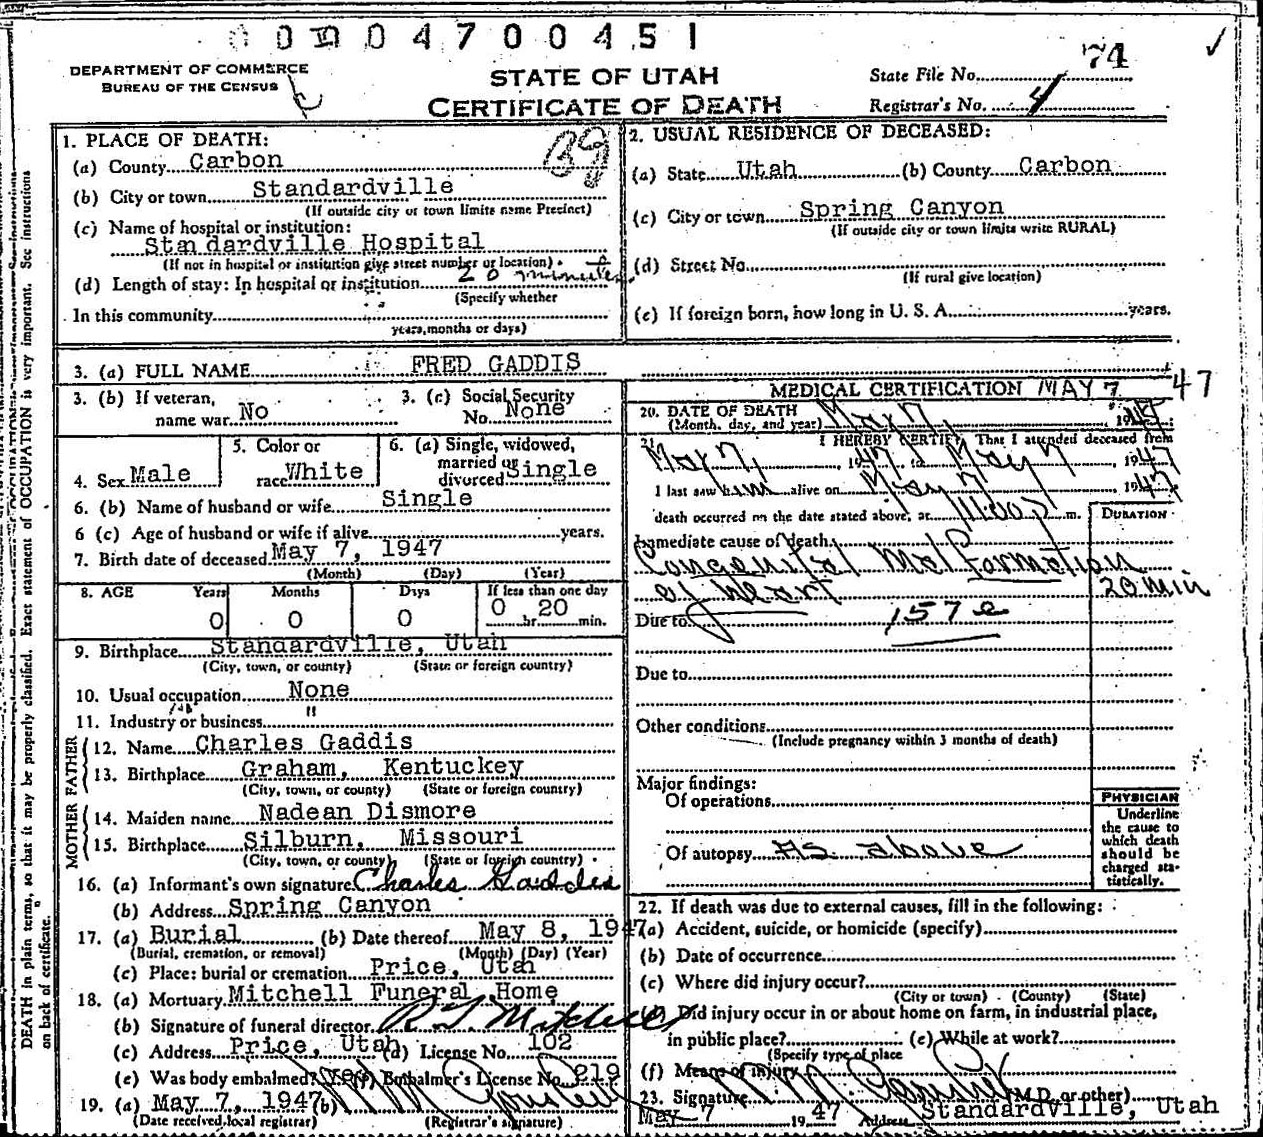 0 0 4 7 0 0 4 5 1
74
DEPARTMENT OF COMMERCE
BUREAU OF THE CENSUS
C
STATE OF UTAH
CERTIFICATE OF DEATH
State File No.
Registrar's No. 4
1. PLACE OF DEATH:
39
(a) County Carbon
(b) City or town Standardville
(If outside city or town limits name Precinct)
(c) Name of hospital or institution:
Standardville Hospital
(If not in hospital or institution give street number or location)
(d) Length of stay: In hospital or institution 20 minutes
(Specify whether
In this community
years, months or days)
2. USUAL RESIDENCE OF DECEASED:
(a) State Utah (b) County Carbon
(c) City or town Spring Canyon
(If outside city or town limits write RURAL)
(d) Street No.
(If rural give location)
(e) If foreign born, how long in U. S. A. years.
3. (a) FULL NAME FRED GADDIS
3. (b) If veteran, name war No
3. (c) Social Security No. None
4. Sex Male
5. Color or race White
6. (a) Single, widowed, married or divorced Single
6. (b) Name of husband or wife Single
6 (c) Age of husband or wife if alive years.
7. Birth date of deceased May 7, 1947
(Month) (Day) (Year)
8. AGE Years Months Days If less than one day
0 0 0 0 hr. 20 min.
9. Birthplace Standardville, Utah
(City, town, or county) (State or foreign country)
10. Usual occupation None
11. Industry or business "
FATHER
12. Name Charles Gaddis
13. Birthplace Graham, Kentuckey
(City, town, or county) (State or foreign country)
MOTHER
14. Maiden name Nadean Dismore
15. Birthplace Silburn, Missouri
(City, town, or county) (State or foreign country)
16. (a) Informant's own signature Charles Gaddis
(b) Address Spring Canyon
17. (a) Burial (b) Date thereof May 8, 1947
(Burial, cremation, or removal) (Month) (Day) (Year)
(c) Place: burial or cremation Price, Utah
18. (a) Mortuary Mitchell Funeral Home
(b) Signature of funeral director R T Mitchell
(c) Address Price, Utah (d) License No. 102
(e) Was body embalmed? Yes (f) Embalmer's License No. 219
19. (a) May 7, 1947 (b)
(Date received local registrar) (Registrar's signature)
MEDICAL CERTIFICATION MAY 7 47
20. DATE OF DEATH
(Month, day, and year) May 7, 1947
21. I HEREBY CERTIFY, That I attended deceased from
May 7, 1947 to May 7, 1947
I last saw him alive on May 7, 1947
death occurred on the date stated above, at 11:00 P m.
DURATION
Immediate cause of death
Congenital Malformation
of heart 20 min
Due to 157 e
Due to
Other conditions
(Include pregnancy within 3 months of death)
Major findings:
Of operations
Of autopsy As above
PHYSICIAN
Underline
the cause to
which death
should be
charged sta-
tistically.
22. If death was due to external causes, fill in the following:
(a) Accident, suicide, or homicide (specify)
(b) Date of occurrence
(c) Where did injury occur?
(City or town) (County) (State)
Did injury occur in or about home on farm, in industrial place,
in public place? (e) While at work?
(Specify type of place
(f) Means of injury
23. Signature (M.D. or other)
May 7 1947 Address Standardville, Utah
DEATH in plain terms, so that it may be properly classified. Exact statement of OCCUPATION is very important. See instructions
on back of certificate.